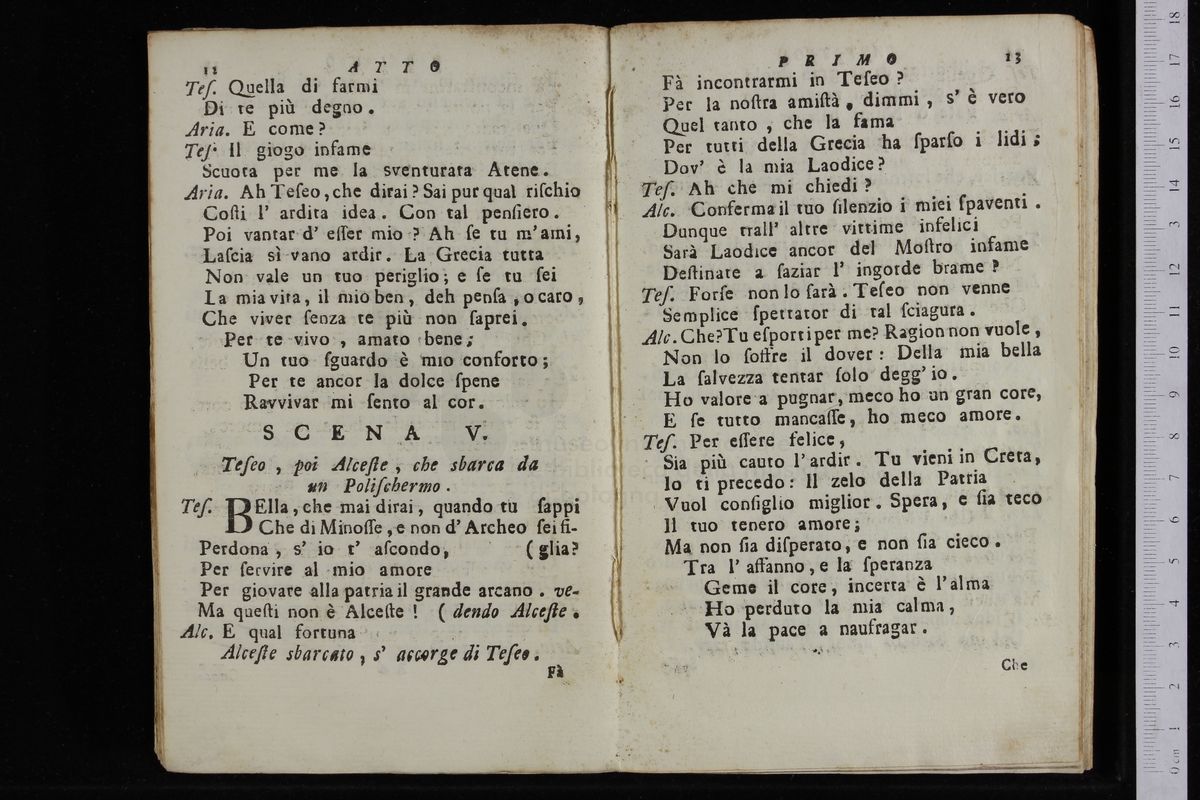 12 ATTO
Teſ. Quella di farmi
Di te più degno.
Aria. E come?
Teſ. Il giogo infame
Scuota per me la sventurata Atene.
Aria. Ah Teſeo, che dirai? Sai pur qual riſchio
Coſti l' ardita idea. Con tal penſiero.
Poi vantar d' eſſer mio? Ah ſe tu m'ami,
Laſcia sì vano ardir. La Grecia tutta
Non vale un tuo periglio; e ſe tu ſei
La mia vita, il mio ben, deh penſa, o caro,
Che viver ſenza te più non ſaprei.
Per te vivo, amato bene;
Un tuo ſguardo è mio conforto;
Per te ancor la dolce ſpene
Ravvivar mi ſento al cor.
SCENA V.
Teſeo, poi Alceſte, che sbarca da
un Poliſchermo.
Teſ. BElla, che mai dirai, quando tu ſappi
Che di Minoſſe, e non d' Archeo ſei fi-
Perdona, s' io t' aſcondo, (glia?
Per ſervire al mio amore
Per giovare alla patria il grande arcano. ve-
Ma queſti non è Alceſte! (dendo Alceſte.
Alc. E qual fortuna
Alceſte sbarcato, s' accorge di Teſeo.
Fà
PRIMO 13
Fà incontrarmi in Teſeo?
Per la noſtra amiſtà, dimmi, s' è vero
Quel tanto, che la fama
Per tutti della Grecia ha ſparſo i lidi;
Dov' è la mia Laodice?
Teſ. Ah che mi chiedi?
Alc. Conferma il tuo ſilenzio i miei ſpaventi.
Dunque trall' altre vittime infelici
Sarà Laodice ancor del Moſtro infame
Deſtinate a ſaziar l' ingorde brame?
Teſ. Forſe non lo ſarà. Teſeo non venne
Semplice ſpettator di tal ſciagura.
Alc. Che? Tu eſporti per me? Ragion non vuole,
Non lo ſoffre il dover: Della mia bella
La ſalvezza tentar ſolo degg' io.
Ho valore a pugnar, meco ho un gran core,
E ſe tutto mancaſſe, ho meco amore.
Teſ. Per eſſere felice,
Sia più cauto l' ardir. Tu vieni in Creta,
Io ti precedo: Il zelo della Patria
Vuol conſiglio miglior. Spera, e ſia teco
Il tuo tenero amore;
Ma non ſia diſperato, e non ſia cieco.
Tra l' affanno, e la ſperanza
Geme il core, incerta è l'alma
Ho perduto la mia calma,
Và la pace a naufragar.
Che